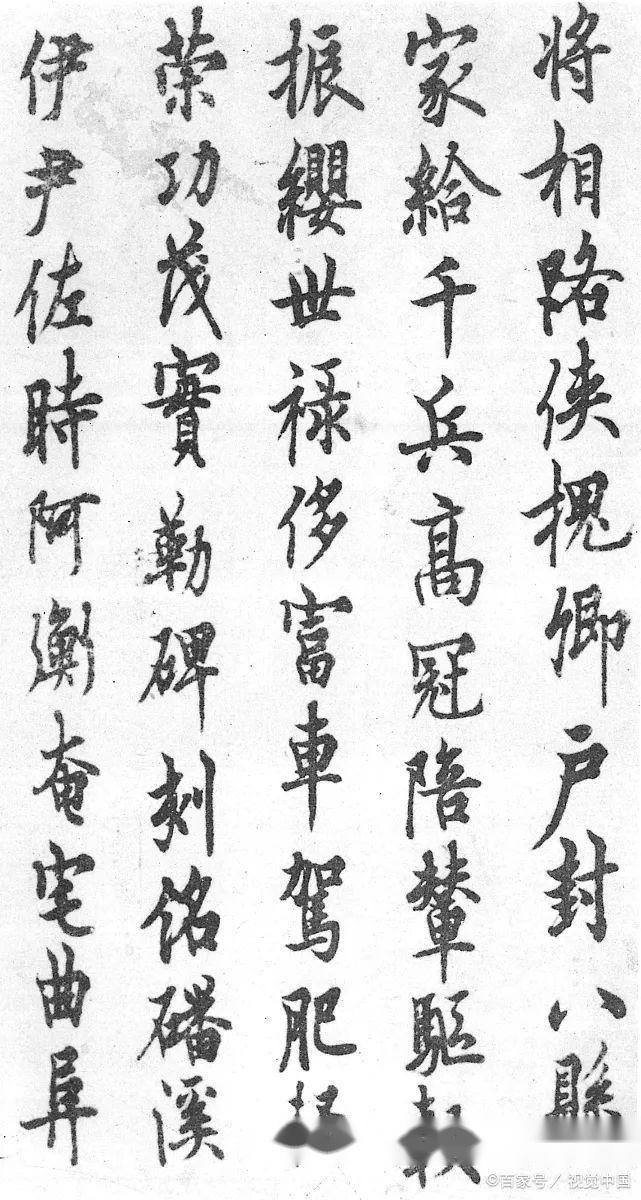 将相路侠槐卿户封八縣
家給千兵高冠陪輦驅
振纓世禄侈富車駕肥
荣功茂實勒碑刻銘磻溪
伊尹佐時阿衡奄宅曲阜
©百家号／视觉中国